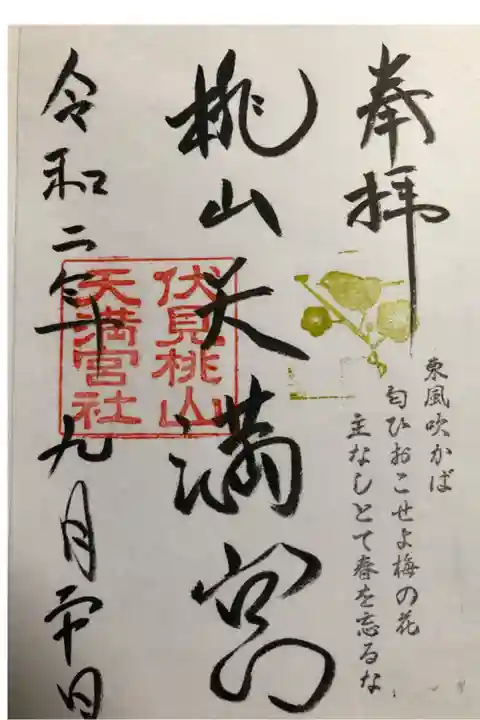 奉拝
東風吹かば
匂ひおこせよ梅の花
主なしとて春を忘るな
桃山天満宮
伏見桃山
天満宮社
令和二年九月廿日